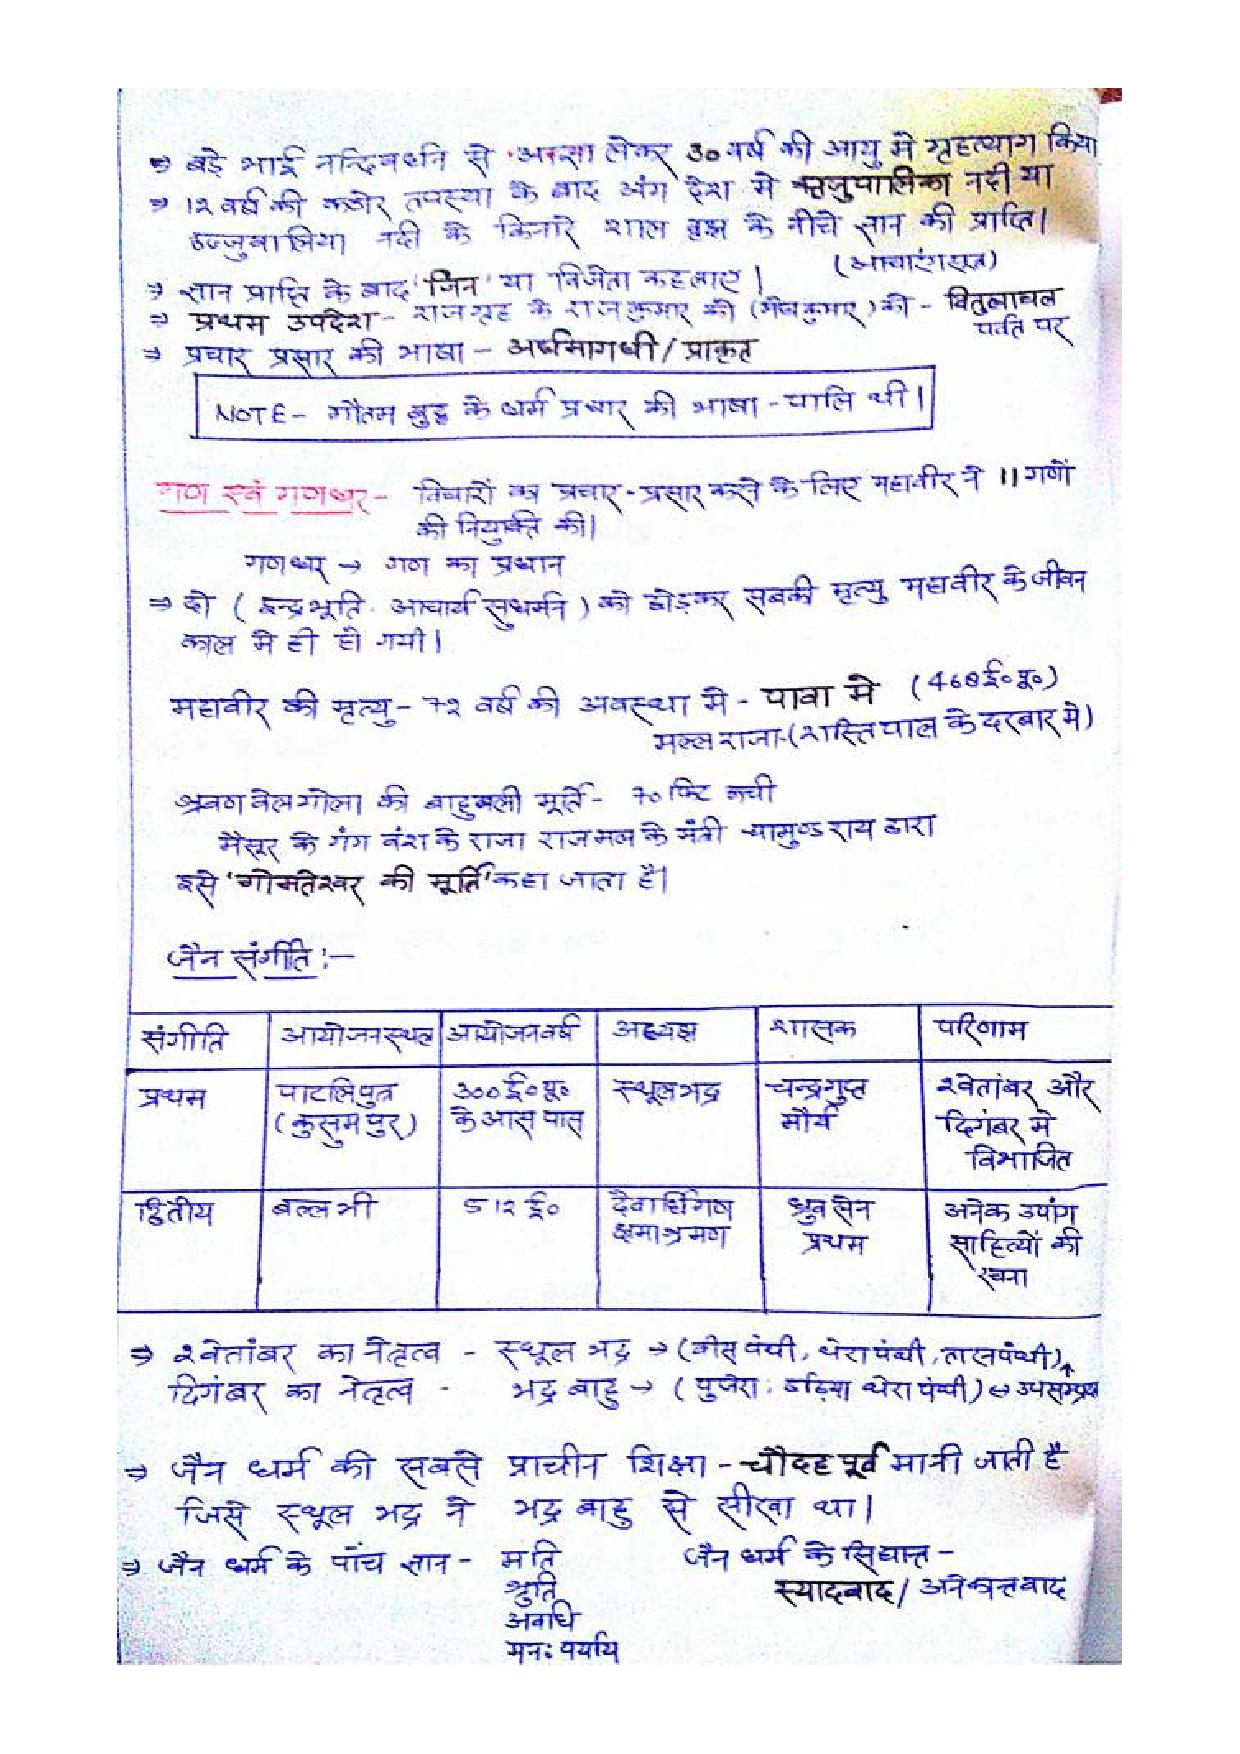 ⇒ बड़े भाई नन्दिवर्धन से आज्ञा लेकर 30 वर्ष की आयु मे गृहत्याग किया
⇒ 12 वर्ष की कठोर तपस्या के बाद अंग देश मे ऋजुपालिका नदी या
उज्जुवालिया नदी के किनारे शाल वृक्ष के नीचे ज्ञान की प्राप्ति।
(आचारंगसूत्र)
⇒ ज्ञान प्राप्ति के बाद 'जिन' या विजेता कहलाए।
⇒ प्रथम उपदेश - राजगृह के राजकुमार को (मेघकुमार) को - वितुलाचल
पर्वत पर
⇒ प्रचार प्रसार की भाषा - अर्धमागधी / प्राकृत
NOTE - गौतम बुद्ध के धर्म प्रचार की भाषा - पालि थी।
गण एवं गणधर - विचारों का प्रचार-प्रसार करने के लिए महावीर ने 11 गणों
की नियुक्ति की।
गणधर → गण का प्रधान
⇒ दो ( इन्द्रभूति. आचार्य सुधर्मन ) को छोड़कर सबकी मृत्यु महावीर के जीवन
काल मे ही हो गयी।
महावीर की मृत्यु - 72 वर्ष की अवस्था मे - पावा मे (468 ई॰ पू॰)
मल्ल राजा-(शस्तिपाल के दरबार मे)
श्रवण वेलगोला की बाहुबली मूर्ति - 70 फिट ऊची
मैसूर के गंग वंश के राजा राजमल के मंत्री चामुण्ड राय द्वारा
इसे 'गोमतेश्वर की मूर्ति' कहा जाता है।
जैन संगीति :-
संगीति | आयोजन स्थल | आयोजन वर्ष | अध्यक्ष | शासक | परिणाम
प्रथम | पाटलिपुत्र (कुसुमपुर) | 300 ई॰ पू॰ के आस पास | स्थूलभद्र | चन्द्रगुप्त मौर्य | श्वेतांबर और दिगंबर मे विभाजित
द्वितीय | बल्लभी | 512 ई॰ | देवार्धिगण क्षमाश्रमण | ध्रुवसेन प्रथम | अनेक उपांग साहित्यों की रचना
⇒ श्वेतांबर का नेतृत्व - स्थूल भद्र → (बीस पंथी, थेरा पंथी, तारापंथी)
दिगंबर का नेतृत्व - भद्र बाहु → ( पुजेरा, ढुंढ़िया थेरा पंथी) ↔ उपसम्प्रदाय
⇒ जैन धर्म की सबसे प्राचीन शिक्षा - चौदह पूर्व मानी जाती है
जिसे स्थूल भद्र ने भद्र बाहु से सीखा था।
⇒ जैन धर्म के पाँच ज्ञान - मति
श्रुति
अवधि
मनः पर्याय
जैन धर्म के सिद्धान्त -
स्यादवाद / अनेकान्तवाद